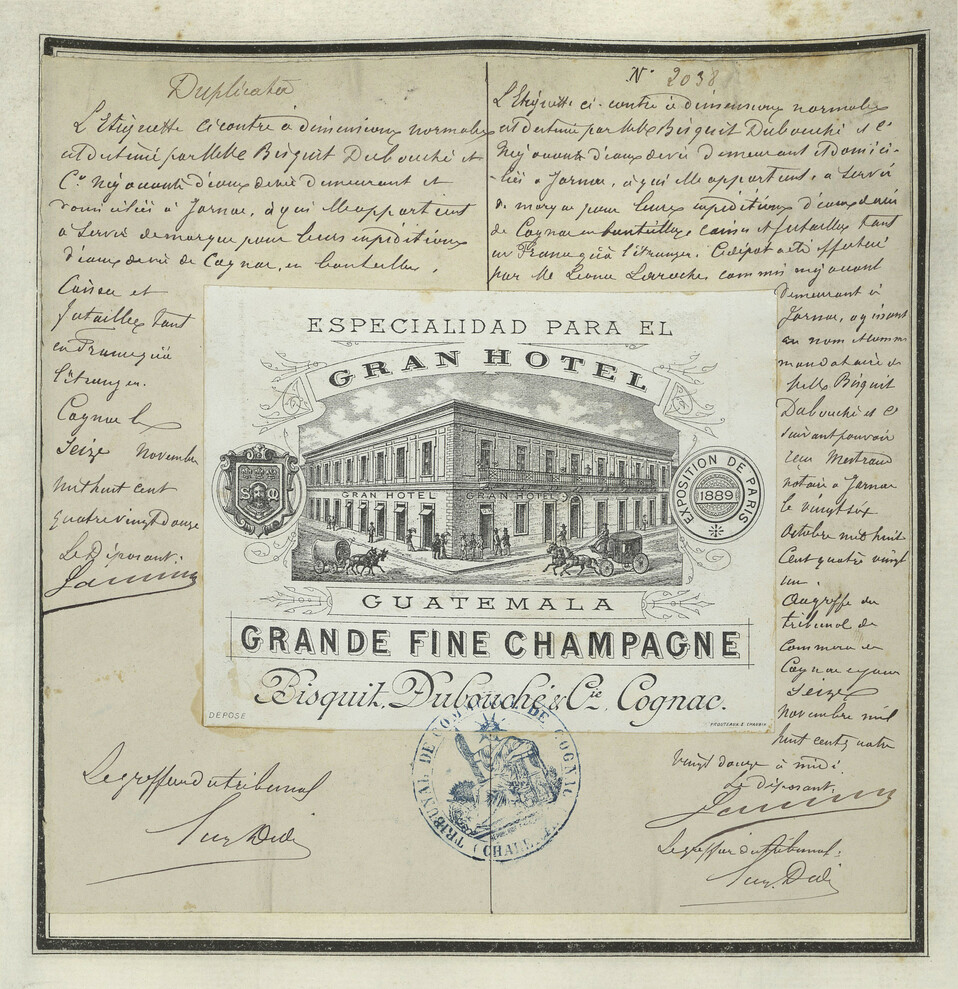 Duplicata
L'Etiquette ci contre à dimensions normales
est destiné par MM Bisquit Dubouché et
Cie Négociants d'eaux de vie demeurant et
domiciliés à Jarnac, à qui elle appartient
à servir de marque pour leurs expéditions
d'eaux de vie de Cognac, en bouteilles,
Caisses et
futailles tant
en France qu'à
l'étranger.
Cognac le
Seize Novembre
mil huit cent
quatre vingt douze
Le Déposant:
N° 2038
L'Etiquette ci-contre à dimensions normales
est destiné par MM Bisquit Dubouché et Cie
Négociants d'eaux de vie demeurant et domici-
-liés à Jarnac, à qui elle appartient, à servir
de marque pour leurs expéditions d'eaux de vie
de Cognac en bouteilles, caisses et futailles tant
en France qu'à l'étranger. Ce dépôt a été effectué
par Mr Laroche, commis négociant
demeurant à
Jarnac, agissant
au nom et comme
mandataire de
Bisquit
Dubouché et Cie
suivant pouvoir
reçu
notaire à Jarnac
le vingt six
Octobre mil huit
Cent quatre vingt
un.
Au greffe du
tribunal de
Commerce de
Cognac ce jour
Seize
Novembre mil
huit cent quatre
vingt douze à midi.
Le déposant:
ESPECIALIDAD PARA EL
GRAN HOTEL
GRAN HOTEL
GRAN HOTEL
EXPOSITION DE PARIS
1889
GUATEMALA
GRANDE FINE CHAMPAGNE
Bisquit, Dubouché & Cie, Cognac.
DEPOSÉ
TRIBUNAL DE COMMERCE DE COGNAC
Le greffier du tribunal
Le greffier du tribunal: